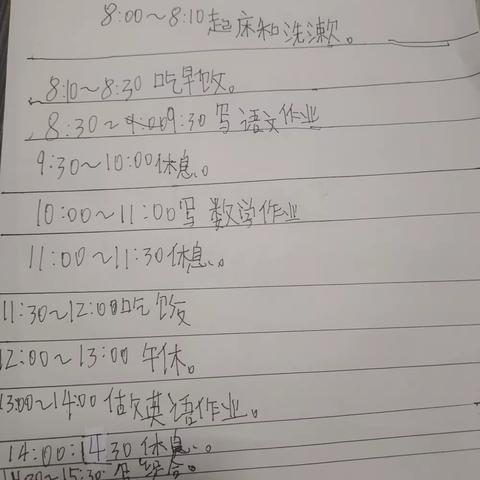 8:00~8:10起床和洗漱。
8:10~8:30 吃早饭。
8:30~9:30 写语文作业
9:30~10:00休息。
10:00~11:00写数学作业
11:00~11:30休息。
11:30~12:00吃饭
12:00~13:00 午休。
13:00~14:00 做英语作业。
14:00:14 30 休息。
14:30~15:30 写 综合。